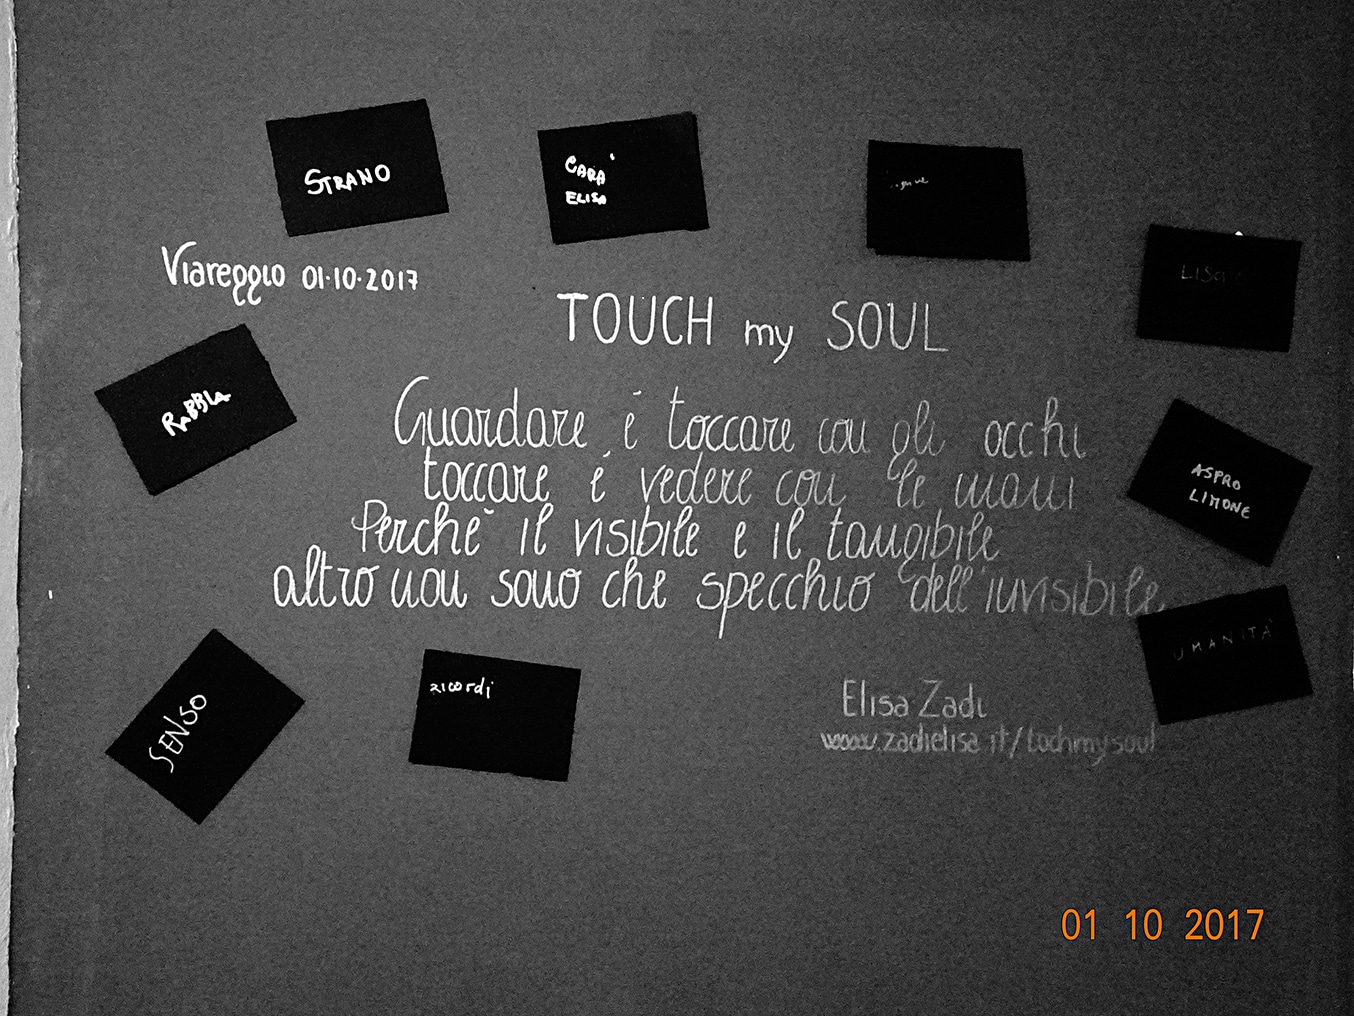 STRANO
CARA'
ELISA
Viareggio 01·10·2017
TOUCH my SOUL
RABBIA
Guardare é toccare con gli occhi
toccare é vedere con le mani
Perché il visibile e il tangibile
altro non sono che specchio dell'invisibile
ASPRO
LIMONE
UMANITÀ
SENSO
ricordi
Elisa Zadi
www.zadielisa.it/tochmysoul
01 10 2017